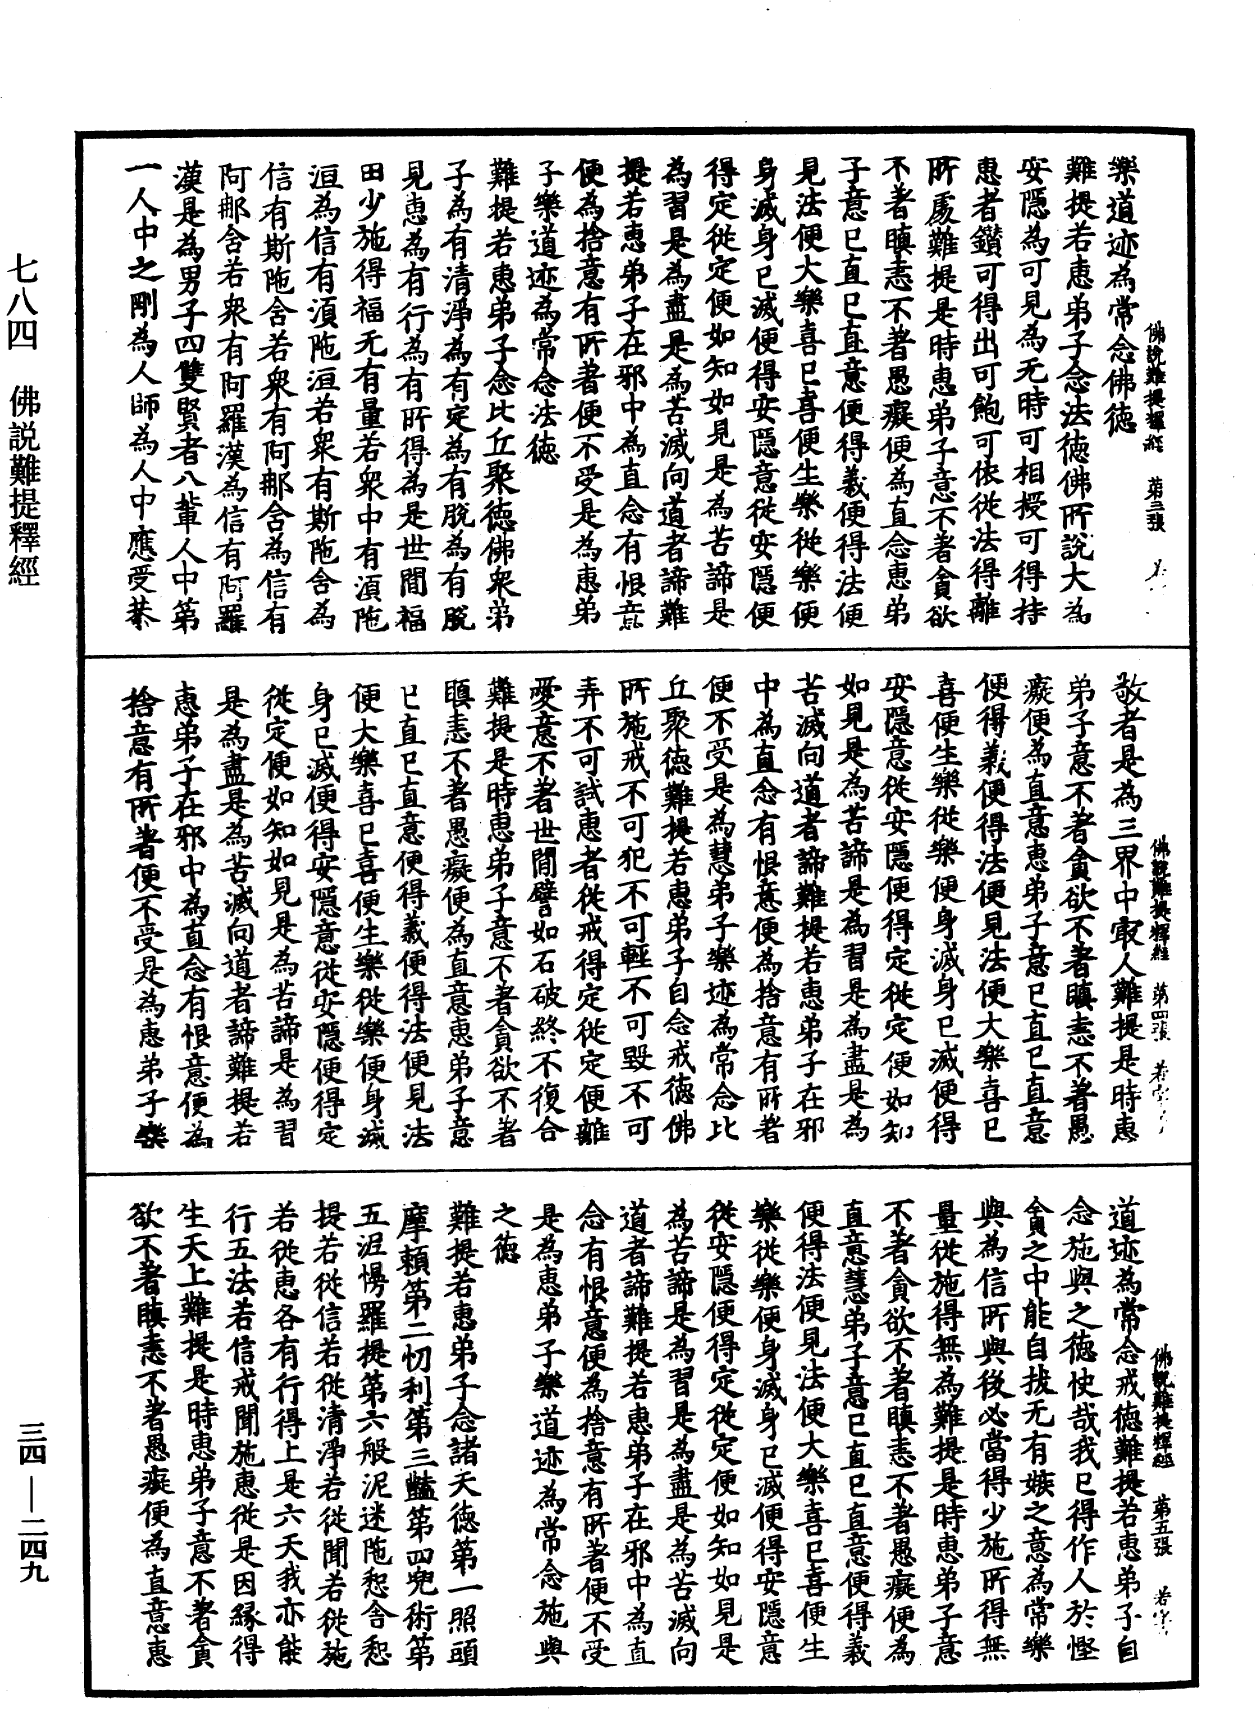 樂道迹為常念佛德
難提若恵弟子念法德佛所說大為
安隱為可見為无時可相授可得持
恵者鑽可得出可飽可依從法得離
所處難提是時恵弟子意不著貪欲
不著瞋恚不著愚癡便為直念恵弟
子意已直已直意便得義便得法便
見法便大樂喜已喜便生樂從樂便
身滅身已滅便得安隱意從安隱便
得定從定便如知如見是為苦諦是
為習是為盡是為苦滅向道者諦難
提若恵弟子在邪中為直念有恨意
便為捨意有所著便不受是為恵弟
子樂道迹為常念法德
難提若恵弟子念比丘聚德佛衆弟
子為有清淨為有定為有脫為有脫
見恵為有行為有所得為是世間福
田少施得福无有量若衆中有湏陁
洹為信有湏陁洹若衆有斯陁含為
信有斯陁含若衆有阿那含為信有
阿那含若衆有阿羅漢為信有阿羅
漢是為男子四雙賢者八輩人中第
一人中之剛為人師為人中應受恭
佛說難提釋經　第三張
敬者是為三界中㝡人難提是時恵
弟子意不著貪欲不著瞋恚不著愚
癡便為直意恵弟子意已直已直意
便得義便得法便見法便大樂喜已
喜便生樂從樂便身滅身已滅便得
安隱意從安隱便得定從定便如知
如見是為苦諦是為習是為盡是為
苦滅向道者諦難提若恵弟子在邪
中為直念有恨意便為捨意有所著
便不受是為慧弟子樂迹為常念比
丘聚德難提若恵弟子自念戒德佛
所施戒不可犯不可輕不可毀不可
弄不可試恵者從戒得定從定便離
愛意不著世間譬如石破終不復合
難提是時恵弟子意不著貪欲不著
瞋恚不著愚癡便為直意恵弟子意
已直已直意便得義便得法便見法
便大樂喜已喜便生樂從樂便身滅
身已滅便得安隱意從安隱便得定
從定便如知如見是為苦諦是為習
是為盡是為苦滅向道者諦難提若
恵弟子在邪中為直念有恨意便為
捨意有所著便不受是為恵弟子樂
佛說難提釋經　第四張　若字
道迹為常念戒德難提若恵弟子自
念施與之德快哉我已得作人於慳
貪之中能自拔无有嫉之意為常樂
與為信所與後必當得少施所得無
量從施得無為難提是時恵弟子意
不著貪欲不著瞋恚不著愚癡便為
直意慧弟子意已直已直意便得義
便得法便見法便大樂喜已喜便生
樂從樂便身滅身已滅便得安隱意
從安隱便得定從定便如知如見是
為苦諦是為習是為盡是為苦滅向
道者諦難提若恵弟子在邪中為直
念有恨意便為捨意有所著便不受
是為恵弟子樂道迹為常念施與
之德
難提若恵弟子念諸天德第一照頭
摩賴第二忉利第三豔第四兜術第
五泥慢羅提第六般泥迷陁惒舍惒
提若從信若從清淨若從聞若從施
若從恵各有行得上是六天我亦能
行五法若信戒聞施恵從是因緣得
生天上難提是時恵弟子意不著貪
欲不著瞋恚不著愚癡便為直意恵
佛說難提釋經　第五張　若字
七八四　佛説難提釋經
三四—二四九